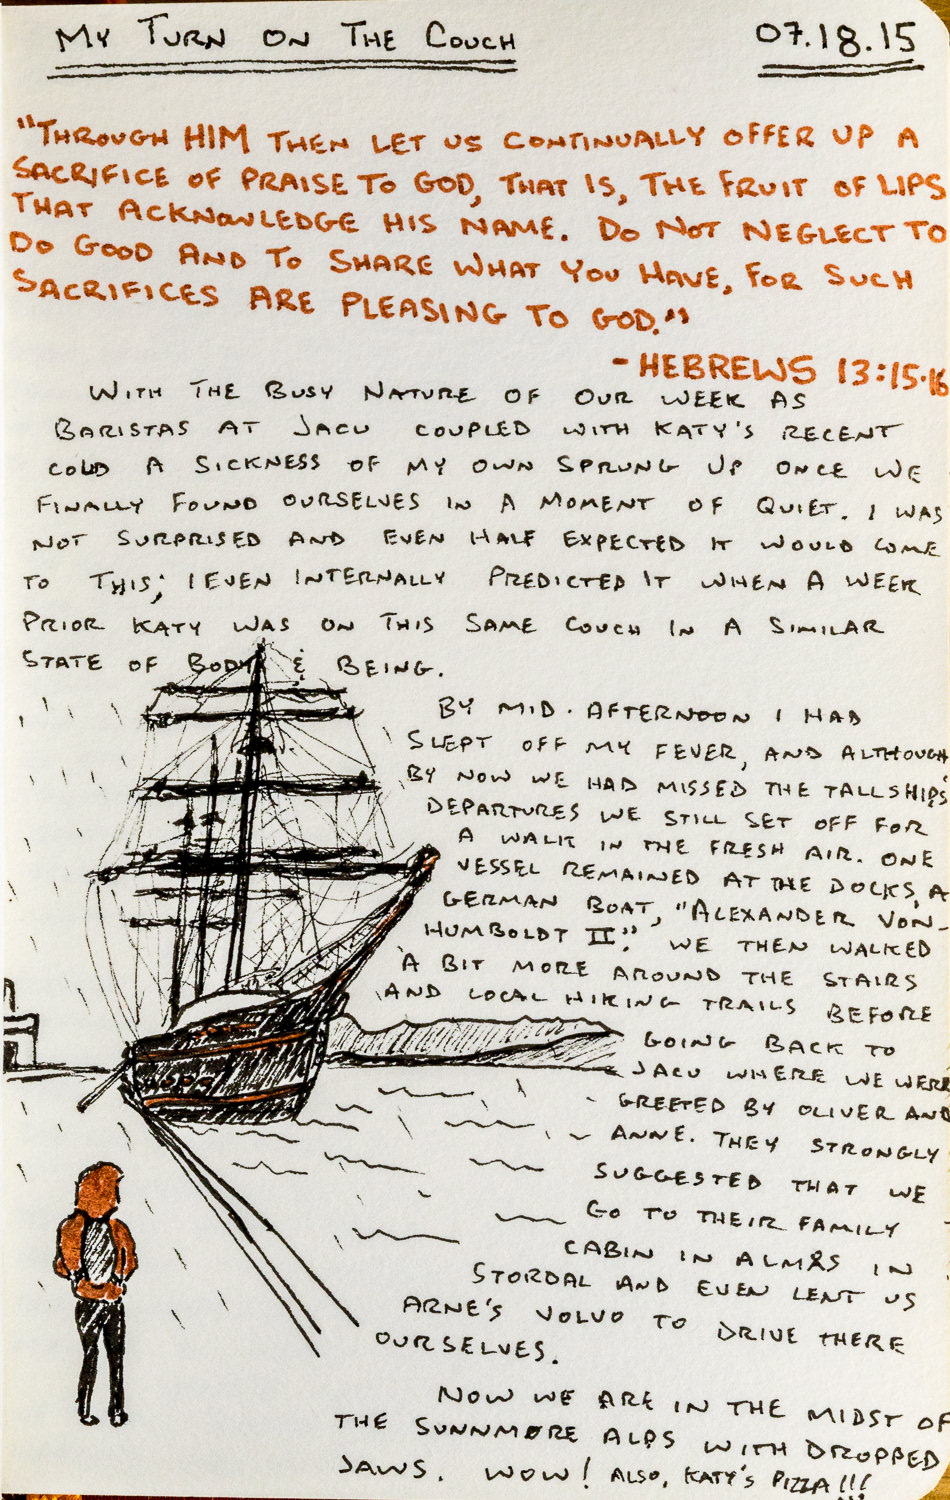 MY TURN ON THE COUCH
07.18.15
"THROUGH HIM THEN LET US CONTINUALLY OFFER UP A
SACRIFICE OF PRAISE TO GOD, THAT IS, THE FRUIT OF LIPS
THAT ACKNOWLEDGE HIS NAME. DO NOT NEGLECT TO
DO GOOD AND TO SHARE WHAT YOU HAVE, FOR SUCH
SACRIFICES ARE PLEASING TO GOD."
-HEBREWS 13:15-16
WITH THE BUSY NATURE OF OUR WEEK AS
BARISTAS AT JACU COUPLED WITH KATY'S RECENT
COLD A SICKNESS OF MY OWN SPRUNG UP ONCE WE
FINALLY FOUND OURSELVES IN A MOMENT OF QUIET. I WAS
NOT SURPRISED AND EVEN HALF EXPECTED IT WOULD COME
TO THIS; I EVEN INTERNALLY PREDICTED IT WHEN A WEEK
PRIOR KATY WAS ON THIS SAME COUCH IN A SIMILAR
STATE OF BODY & BEING.
BY MID-AFTERNOON I HAD
SLEPT OFF MY FEVER, AND ALTHOUGH
BY NOW WE HAD MISSED THE TALLSHIPS'
DEPARTURES WE STILL SET OFF FOR
A WALK IN THE FRESH AIR. ONE
VESSEL REMAINED AT THE DOCKS, A
GERMAN BOAT, "ALEXANDER VON-
HUMBOLDT II". WE THEN WALKED
A BIT MORE AROUND THE STAIRS
AND LOCAL HIKING TRAILS BEFORE
GOING BACK TO
JACU WHERE WE WERE
GREETED BY OLIVER AND
ANNE. THEY STRONGLY
SUGGESTED THAT WE
GO TO THEIR FAMILY
CABIN IN ALMÅS IN
STORDAL AND EVEN LENT US
ARNE'S VOLVO TO DRIVE THERE
OURSELVES.
NOW WE ARE IN THE MIDST OF
THE SUNNMØRE ALPS WITH DROPPED
JAWS. WOW! ALSO, KATY'S PIZZA!!!